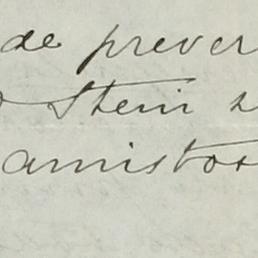 de prever
Stein
amistos